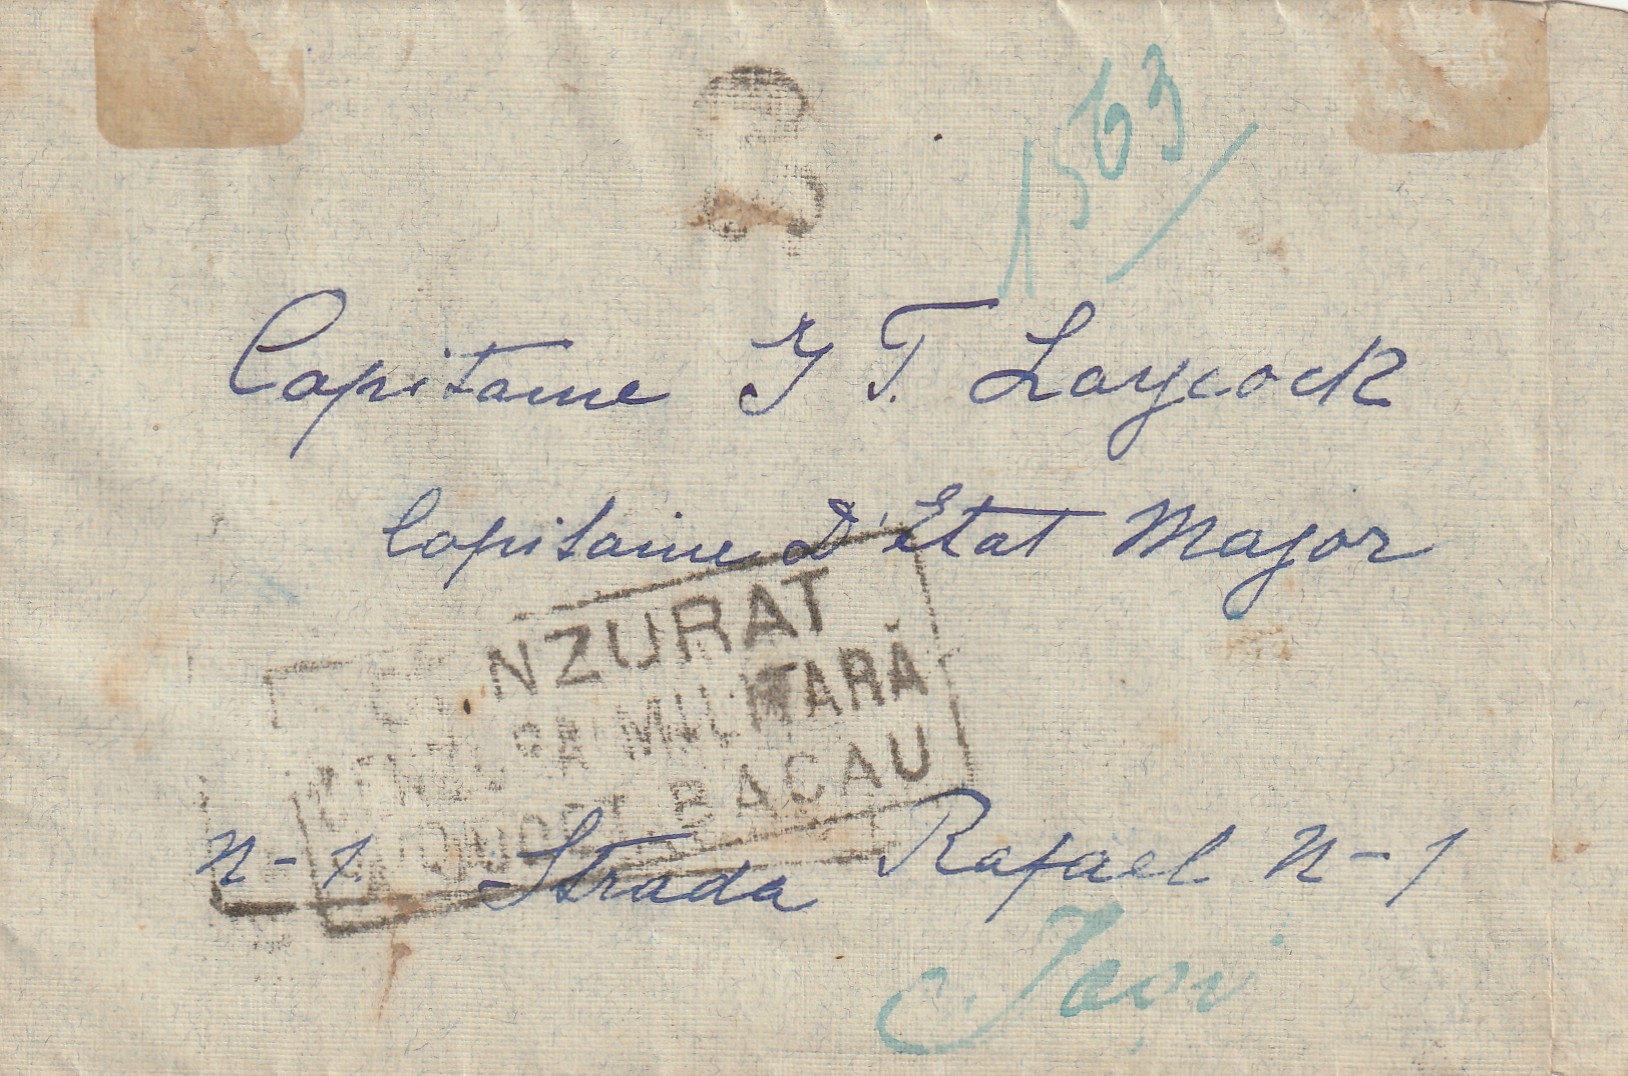 1563
Capitaine J T. Laycock
Capitaine D'Etat Major
CENZURAT
CENZURA MILITARĂ
BACAU
N-1 Strada Rafael N-1
Jași